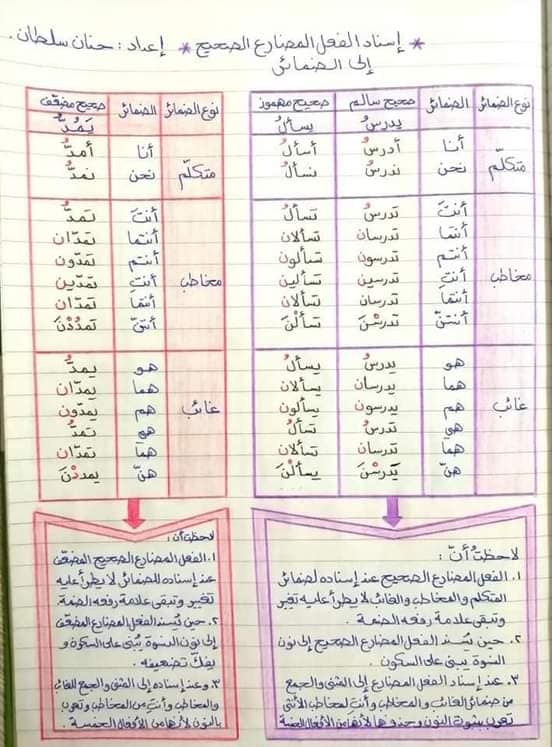 * إسناد الفعل المضارع الصحيح * إعداد : حنان سلطان.
إلى الضمائر
نوع الضمائر الضمائر صحيح سالم صحيح مهموز
يدرسُ يسألُ
متكلّم
أنا أدرسُ أسألُ
نحن ندرسُ نسألُ
مخاطب
أنتَ تدرسُ تسألُ
أنتما تدرسان تسألان
أنتم تدرسون تسألون
أنتِ تدرسين تسألين
أنتما تدرسان تسألان
أنتنّ تدرسْنَ تسألْنَ
غائب
هو يدرسُ يسألُ
هما يدرسان يسألان
هم يدرسون يسألون
هي تدرسُ تسألُ
هما تدرسان تسألان
هنّ يدرسْنَ يسألْنَ
لاحظتُ أنّ :
١. الفعل المضارع الصحيح عند إسناده لضمائر
المتكلم والمخاطب والغائب لا يطرأ عليه تغير
وتبقى علامة رفعه الضمة .
٢. حين يُسند الفعل المضارع الصحيح إلى نون
النسوة يبنى على السكون .
٣. عند إسناد الفعل المضارع إلى المثنى والجمع
من ضمائر الغائب والمخاطب وأنتِ لمخاطب الأنثى
نعرب بثبوت النون وحذفها لأنها من الأفعال الخمسة
نوع الضمائر الضمائر صحيح مضعّف
يَمُدُّ
متكلّم
أنا أمدُّ
نحن نمدُّ
مخاطب
أنتَ تمدُّ
أنتما تمدّان
أنتم تمدّون
أنتِ تمدّين
أنتما تمدّان
أنتنّ تمدُدْنَ
غائب
هو يمدُّ
هما يمدّان
هم يمدّون
هي تمدُّ
هما تمدّان
هنّ يمددْنَ
لاحظت أن :
١. الفعل المضارع الصحيح المضعّف
عند إسناده للضمائر لا يطرأ عليه
تغير وتبقى علامة رفعه الضمة.
٢. حين يُسند الفعل المضارع المضعّف
إلى نون النسوة يُبنى على السكون و
يفكّ تضعيفه .
٣. وعند إسناده إلى المثنى والجمع للغائب
والمخاطب وأنتِ من المخاطب وتعرب
بالنون لأنها من الأفعال الخمسة.